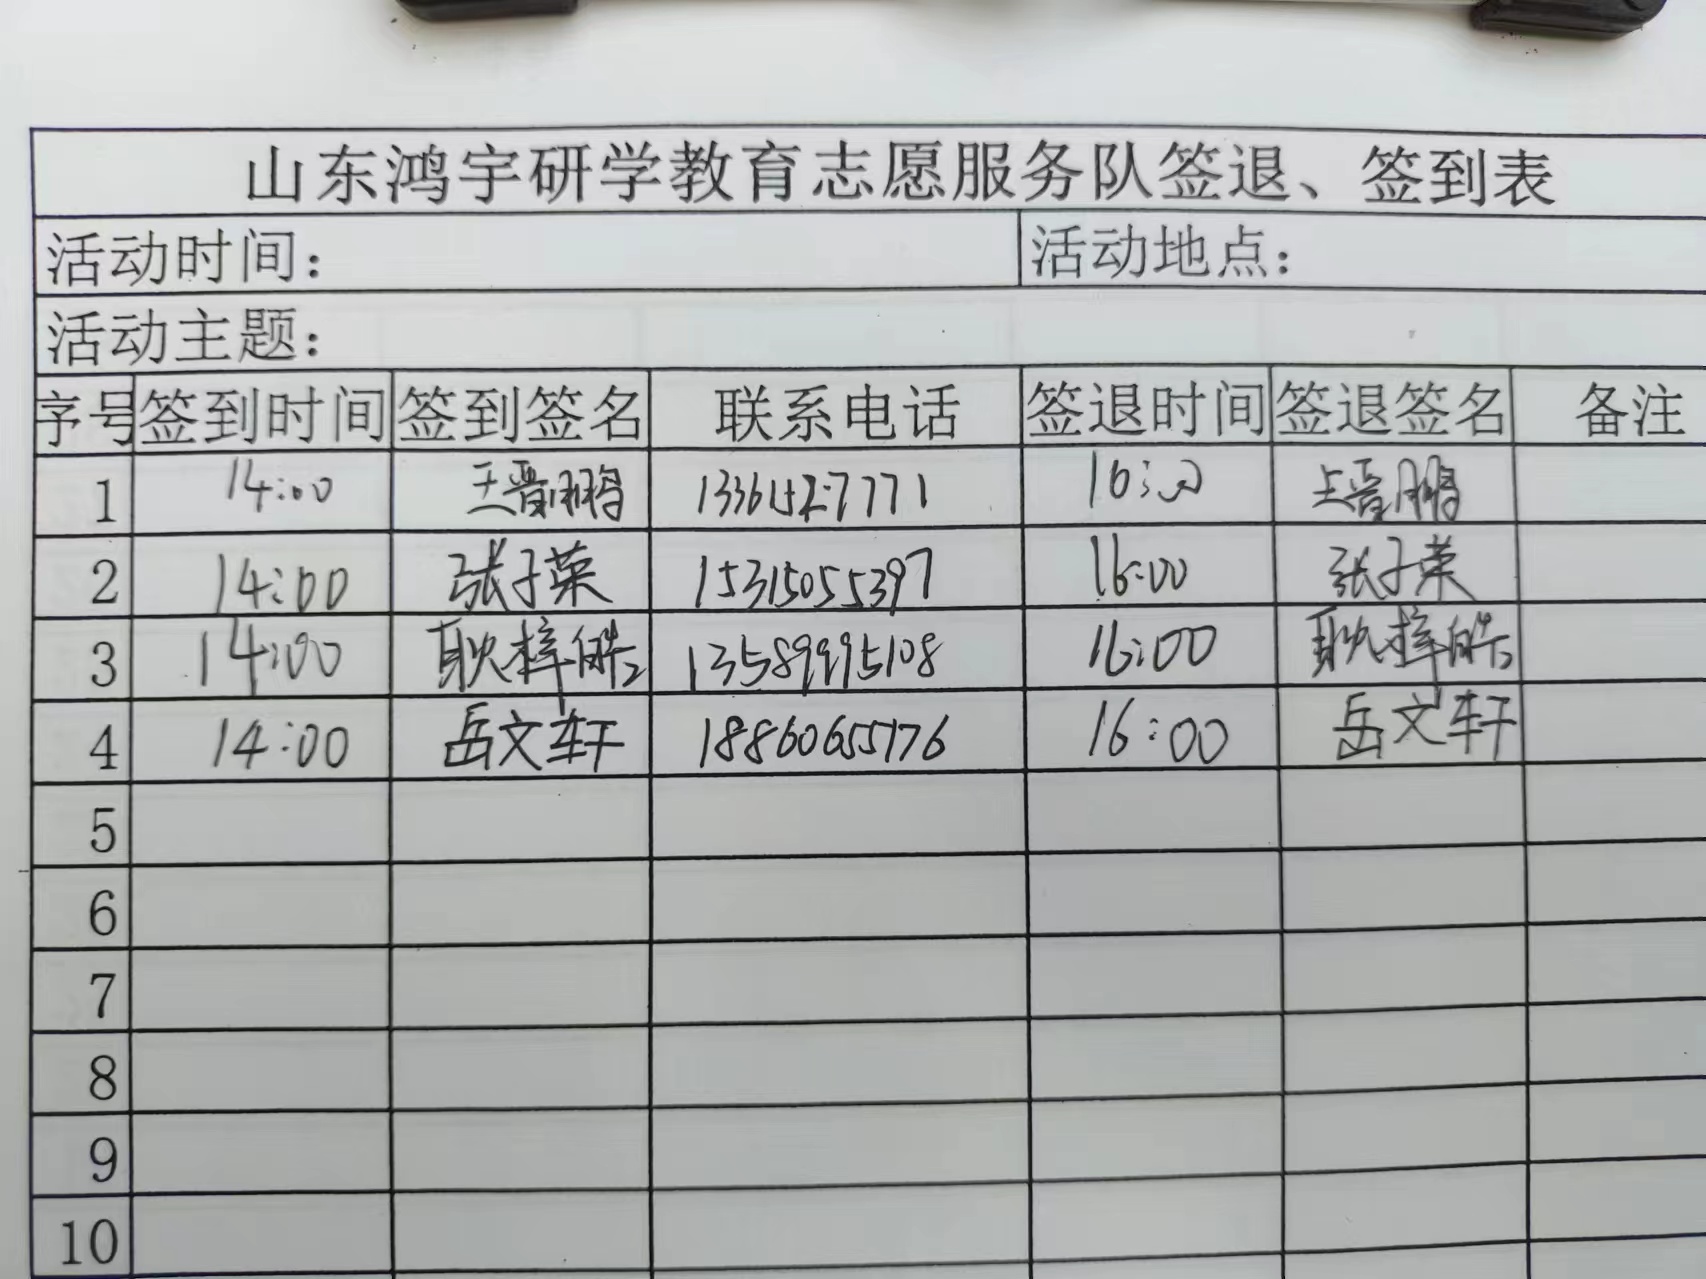 山东鸿宇研学教育志愿服务队签退、签到表
活动时间： 活动地点：
活动主题：
序号 签到时间 签到签名 联系电话 签退时间 签退签名 备注
1 14:00 王晋鹏 16:00 王晋鹏
2 14:00 张子荣 15315055397 16:00 张子荣
3 14:00 耿梓皓 13589995108 16:00 耿梓皓
4 14:00 岳文轩 18860655176 16:00 岳文轩
5
6
7
8
9
10